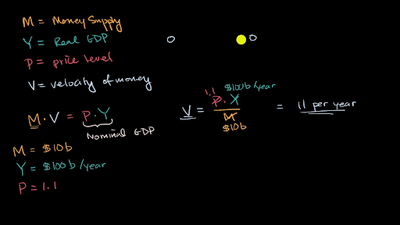 M = Money Supply
Y = Real GDP
P = price level
V = velocity of money
M · V = P · Y
Nominal GDP
M = $10b
Y = $100b/year
P = 1.1
1.1 $100b/year
V = P · Y / M = 11 per year
$10b